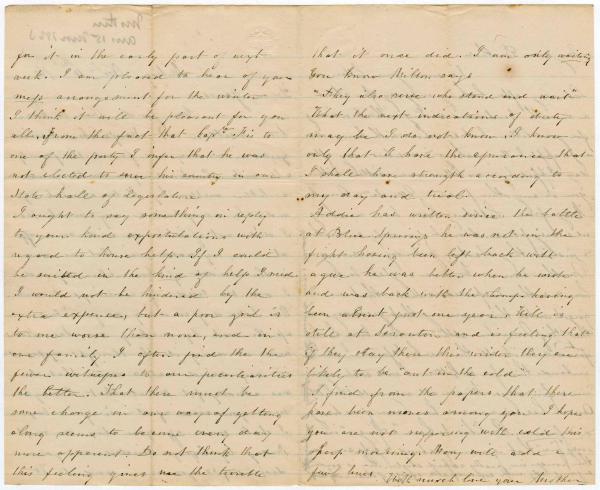 Mother
Ans 15 Nov 1863
for it in the early part of next
week. I am pleased to hear of your
mess arrangement for the winter
I think it will be pleasant for you
all. From the fact that Capt. is to
one of the party I infer that he was
not elected to serve his country in our
State hall of Legislature.
I ought to say something in reply
to your kind expostulations with
regard to house help. If I could
be suited in the kind of help I need
I would not be hindered by the
extra expense, but a poor girl is
to me worse than none, and in
our family I often find the the
fewer witnesses to our peculiarities
the better. That there must be
some change in our way of getting
along seems to become every day
more apparent. Do not think that
this feeling gives me the trouble
that it once did. I am only waiting
You know Milton says
"They also serve who stand and wait"
What the next indications of duty
may be I do not know. I know
only that I have the assurance that
I shall have strength according to
my day and trial.
Addie has written since the battle
at Blue Springs he was not in the
fight having been left back with
ague he was better when he wrote
and was back with the troops having
been absent just one year. Will is
still at Scranton and is feeling that
if they stay there this winter they are
likely to be "out in the cold"
I find from the papers that there
have been moves among you I hope
you are not suffering with cold this
sharp morning. Mary will add a
few lines. With much love your Mother